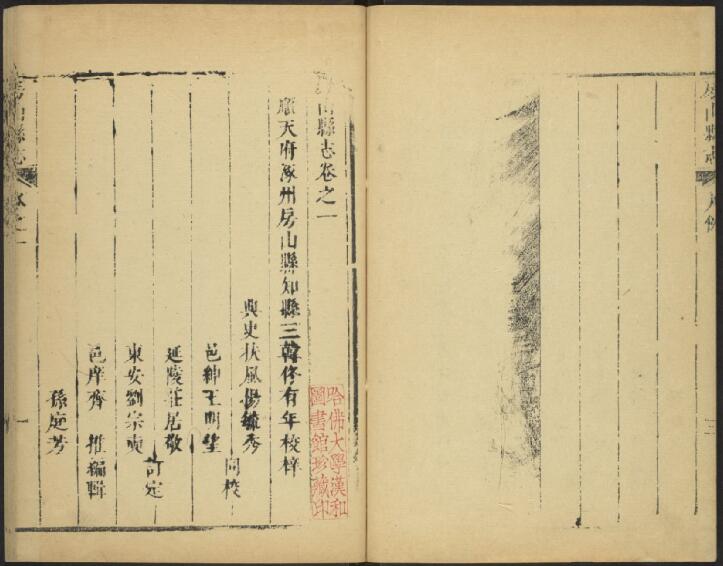 山縣志 凡例
三
山縣志卷之一
順天府涿州房山縣知縣三韓佟有年校梓
典史扶風楊毓秀
同校
邑紳王明望
延陵莊居敬
訂定
東安劉宗
邑庠齊 推編輯
孫廷芳
房山縣志 卷之一
一
哈佛大學漢和
圖書館珍藏印